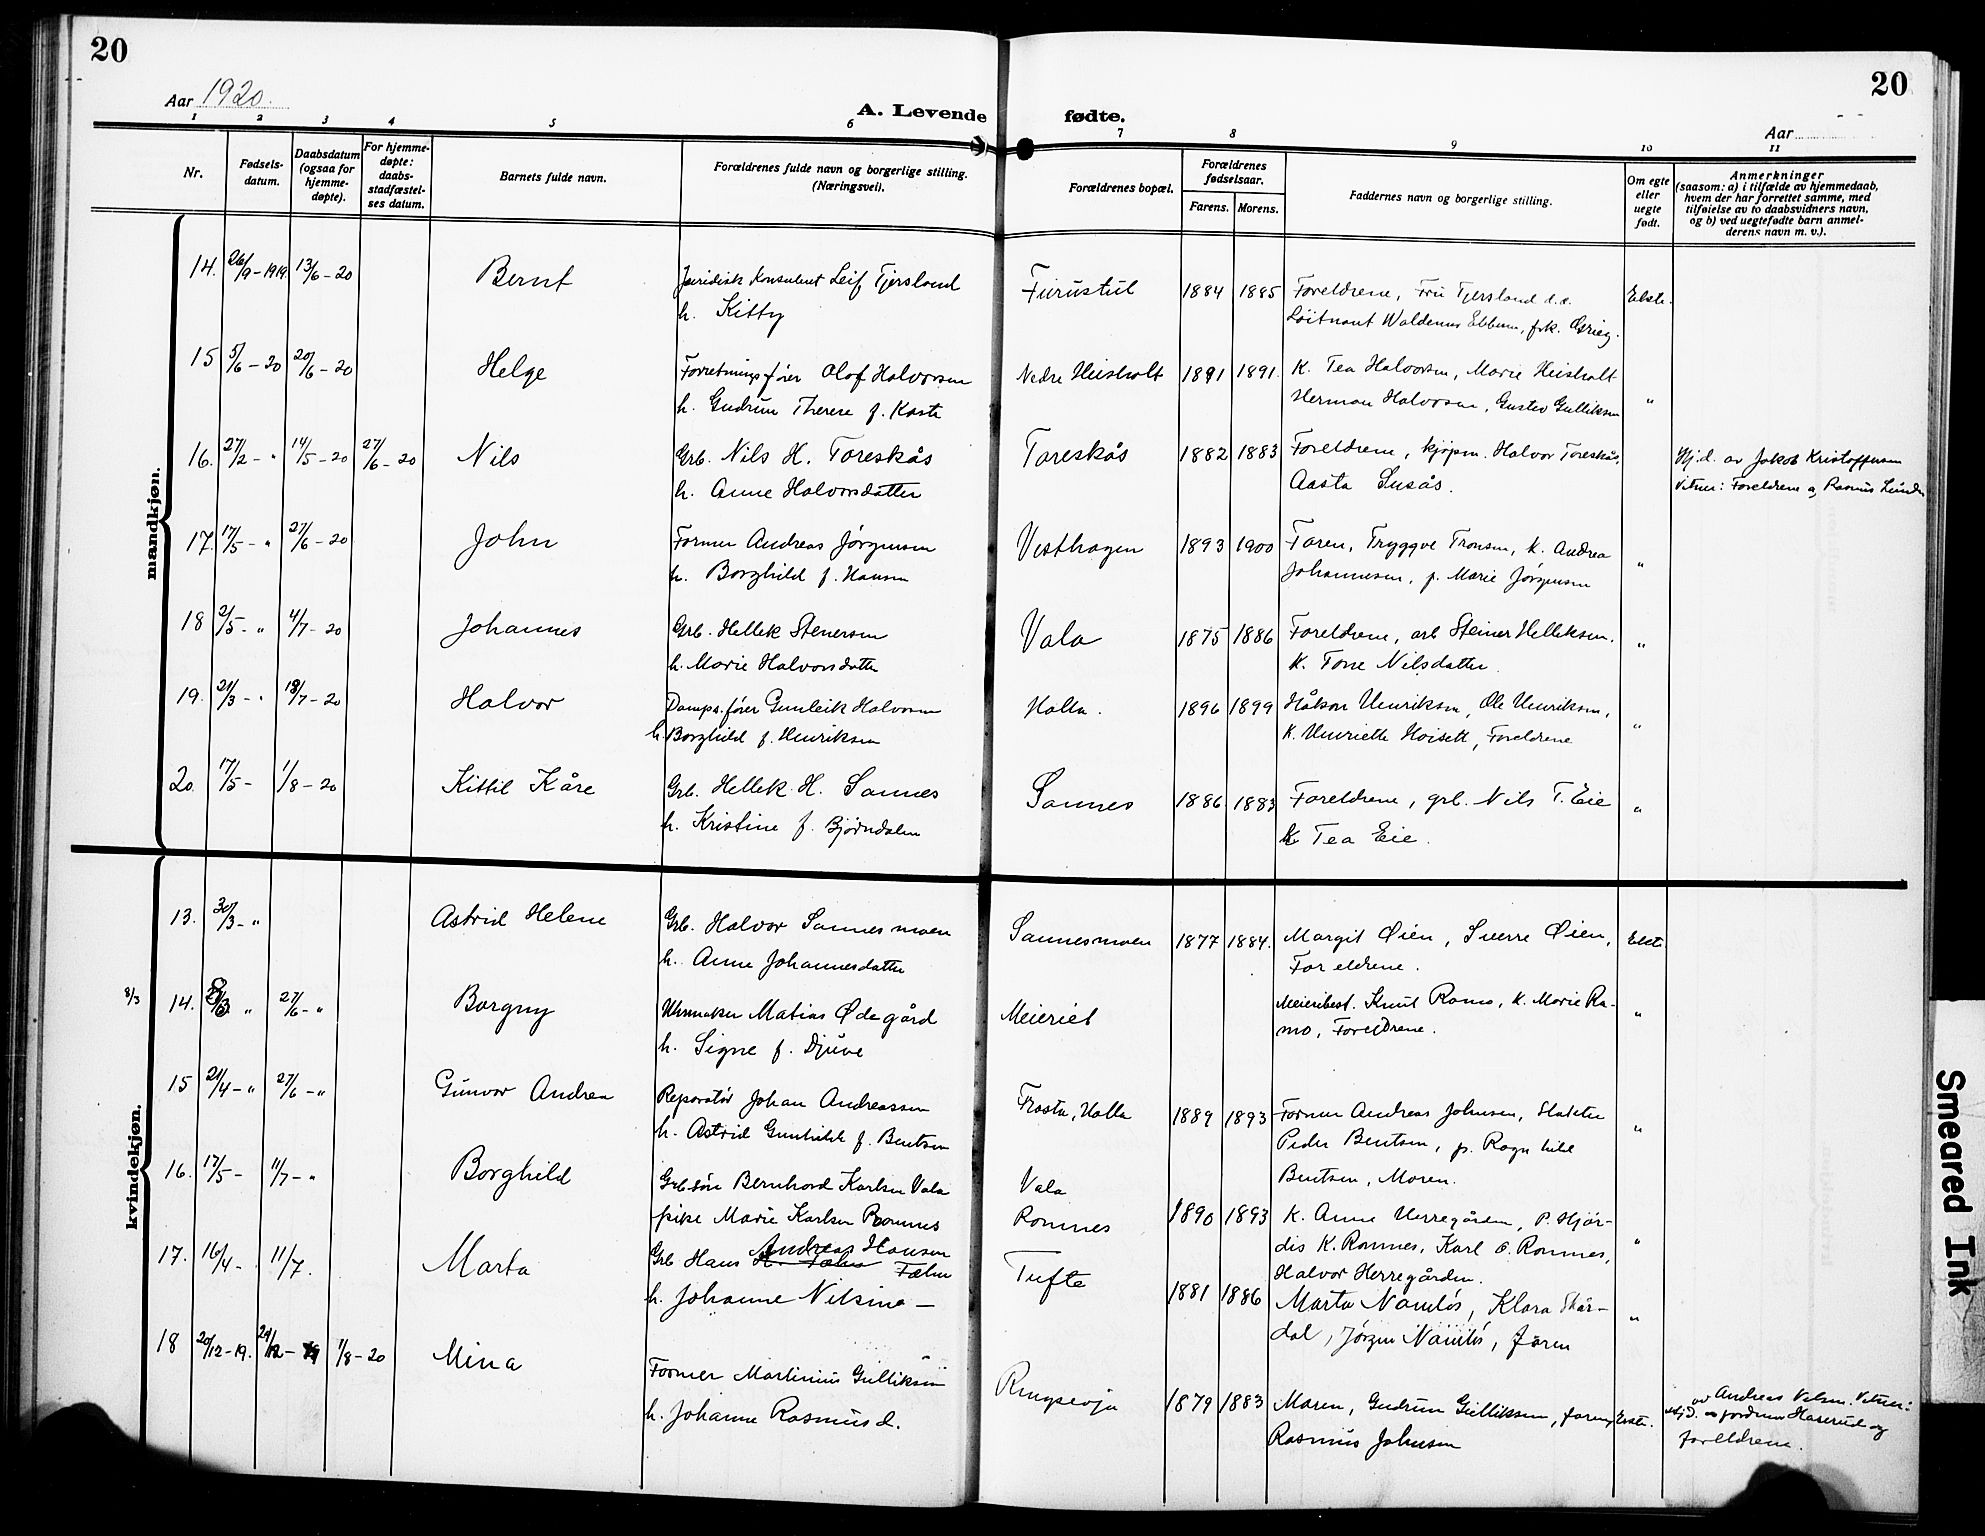 20
20
Aar 1920.
A. Levende fødte.
Aar
1 2 3 4 5 6 7 8 9 10 11
Nr.
Fødsels-
datum.
Daabsdatum
(ogsaa for
hjemme-
døpte).
For hjemme-
døpte:
daabs-
stadfæstel-
ses datum.
Barnets fulde navn.
Forældrenes fulde navn og borgerlige stilling.
(Næringsvei).
Forældrenes bopæl.
Forældrenes
fødselsaar.
Farens. Morens.
Faddernes navn og borgerlige stilling.
Om egte
eller
uegte
født.
Anmerkninger
(saasom: a) i tilfælde av hjemmedaab,
hvem der har forrettet samme, med
tilføielse av to daabsvidners navn,
og b) ved uegtefødte barn anmel-
derens navn m. v.).
mandkjøn.
14. 26/9-1919 13/6-20 Bernt Juridisk konsulent Leif Tjersland Furustul 1884 1885 Foreldrene, Fru Tjersland d.e. Ekte.
h. Kitty Løitnant Waldemar, frk. Grieg.
15 5/6-20 20/6-20 Helge Forretningsfører Olof Halvorsen Nedre Heisholt 1891 1891. K. Tea Halvorsen, Marie Heisholt "
h. Gudrun Therese f. Kaste Herman Halvorsen, Gustav Gulliksen
16. 27/2-" 14/5-20 27/6-20 Nils Grb. Nils H. Toreskås Toreskås 1882 1883 Foreldrene, kjøpm. Halvor Toreskås, Hj.d. av Jakob Kristoffersen
h. Anne Halvorsdatter Aasta Susås. Vitner: Foreldrene og Rasmus Lunde
17. 17/5-" 27/6-20 John Former Andreas Jørgensen Vesthagen 1893 1900 Faren, Tryggve Tronsen, K. Andrea "
h. Borghild f. Hansen Johannesen, p. Marie Jørgensen
18 2/5-" 4/7-20 Johannes Grb. Hellek Stenersen Vala 1875 1886 Foreldrene, arb Steiner Helleksen. "
h. Marie Halvorsdatter K. Tone Nilsdatter.
19. 21/3-" 18/7-20 Halvor Damps.fører Gunleik Halvorsen Holla. 1896 1899 Håkon Henriksen, Ole Henriksen, "
h. Borghild f. Henriksen K. Henriette Hoisett, Foreldrene
20. 17/5- 1/8-20 Kittil Kåre Grb. Hellek H. Sannes Sannes 1886 1883 Foreldrene, grb. Nils T. Eie "
h. Kristine f. Bjørndalen K. Tea Eie.
kvindekjøn.
13. 30/3-" Astrid Helene Grb. Halvor Sannesmoen Sannesmoen 1877 1884. Margit Øien, Sverre Øien, Ekte.
h. Anne Johannesdatter Foreldrene.
8/3 14. 8/3 " 27/6-" Borgny Urmaker Matias Ødegård Meieriet Meieribest. Knut Ramo, K. Marie Ra- "
h. Signe f. Djuve mo, Foreldrene.
15 21/4-" 27/6-" Gunvor Andrea Reparatør Johan Andreassen Frosta, Holla 1889 1893 Former Andreas Johnsen, "
h. Astrid Gunhild f. Bentsen Peder Bentsen, p. Ragnhild
Bentsen, Moren.
16. 17/5- 11/7-" Borghild Grb.søn Bernhard Karlsen Vala Vala
pike Marie Karlsen Romnes Romnes 1890 1893 K. Anne Herregården, P. Hjør- "
dis K. Romnes, Karl O. Romnes,
Halvor Herregården.
17. 16/4- 11/7. Marta Grb Hans Andreas Hansen Tufte 1881 1886 Marta Namløs, Klara Skår- "
H. Fæhn Fæhn
h. Johanne Nilsine — dal, Jørgen Namløs, Faren
18 20/12-19. 29/12-19 1/8-20 Mina Former Martinius Gulliksen Ringsevja 1879 1883 Moren, Gudrun Gulliksen, faren, Ekte. av Andreas Nilsen. Vitner:
h. Johanne Rasmusd. Rasmus Johnsen Hj.d. Haserud og
foreldrene.
Smeared Ink